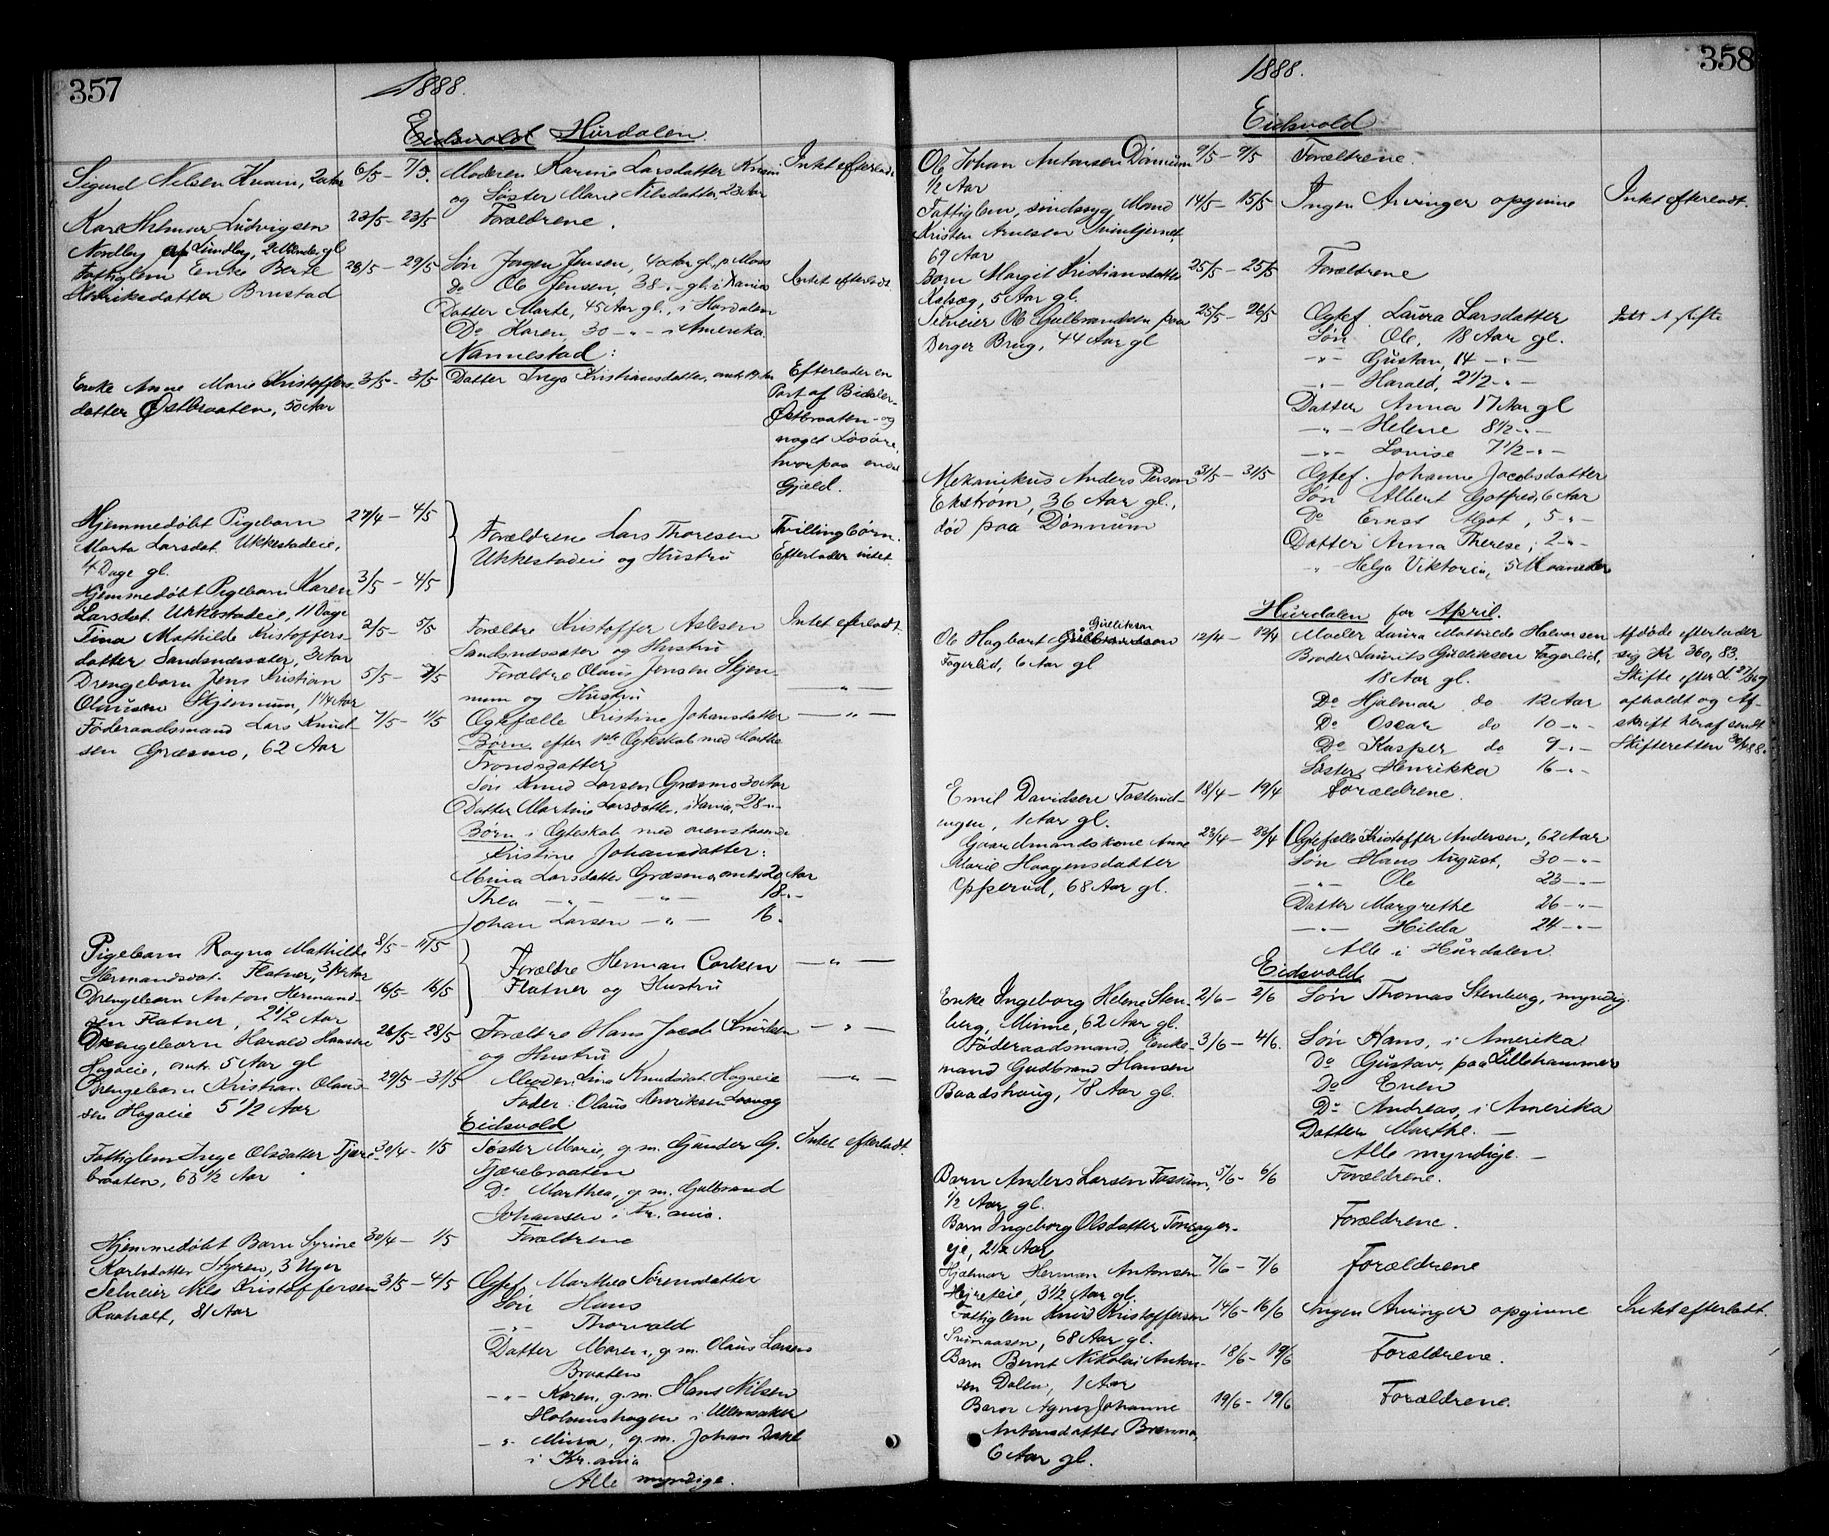 357
1888.
Eidsvold Hurdalen
Sigurd Nilsen Knain, 2 Aar
6/5 – 7/5.
Moderen Karine Larsdatter Knain
og Søster Marie Nilsdatter, 23 Aar
Intet efterladt
Karl Hilmar Ludvigsen
Nordby Lundby, 2 Maaneder gl
23/5 – 23/5
Forældrene.
Fattiglem Enke Berte
Henriksdatter Brustad
28/5 – 29/5
Søn Jørgen Jensen, 40 Aar gl., p. Moss
do Ole Jensen, 38 -„- gl. i Kania
Datter Marte, 45 Aar gl., i Hurdalen
Do Karen, 30 -„- i Amerika.
Intet efterladt.
Nannestad:
Enke Anne Marie Kristoffers-
datter Østbraaten, 50 Aar
3/5 – 3/5
Datter Inga Kristiansdatter, omtr. 19 Aar
Efterlader en
Part af Bidsler-
Østbraaten og
noget Løsøre,
hvorpaa endel
Gjæld.
Hjemmedøbt Pigebarn
Marta Larsdat. Ukkestadeie,
4 Dage gl.
27/4 – 4/5
Forældrene Lars Thoresen
Ukkestadeie og Hustru
Tvillingbørn.
Efterlader intet
Hjemmedøbt Pigebarn Karen
Larsdat. Ukkestadeie, 11 Dage
3/5 – 4/5
Tina Mathilde Kristoffers-
datter Sandsnæssæter, 3 Aar
2/5 – 5/5
Forældre Kristoffer Aslesen
Sandsnæssæter og Hustru
Intet efterladt.
Drengebarn Jens Kristian
Olausen Skjennum, 1 1/4 Aar
5/5 – 7/5
Forældre Olaus Jensen Skjen-
num og Hustru
— „ —
Føderaadsmand Lars Knud-
sen Græsmo, 62 Aar
7/5 – 11/5
Ægtefælle Kristine Johansdatter
Børn efter 1ste Ægteskab med Marthe
Trondsdatter
Søn Knud Larsen Græsmo 30 Aar
Datter Martine Larsdatter, i Kania, 28 -„-
Børn i Ægteskab med ovenstaaende
Kristine Johansdatter:
Mina Larsdatter Græsmo, omtr 20 Aar
Thea -„- -„- 18 -„-
Johan Larsen -„- 16.
— „ —
Pigebarn Ragna Mathilde
Hermandsdat. Flatner, 3 1/2 Aar
8/5 – 11/5
Forældre Herman Carlsen
Flatner og Hustru
— „ —
Drengebarn Anton Hermand-
sen Flatner, 2 1/2 Aar
16/5 – 16/5
Drengebarn Harald Hansen
Hagaeie, omtr. 5 Aar gl
26/5 – 28/5
Forældre Hans Jacob Knudsen
og Hustru
— „ —
Drengebarn Kristian Olaus-
sen Hagaeie 5 1/2 Aar
29/5 – 31/5
Moder: Lina Knudsdat. Hagaeie
Fader: Olaus Henriksen
— „ —
Eidsvold
Fattiglem Inge Olsdatter Tjære-
braaten, 65 1/2 Aar
30/4 – 1/5
Søster Marie, g. m. Gunder G.
Tjærebraaten
Do Marthea, g. m. Gulbrand
Johansen i Kr.ania.
Intet efterladt.
Hjemmedøbt Barn Syrine
Karlsdatter Styren, 3 Uger
30/4 – 1/5
Forældrene
Selveier Nils Kristoffersen
Raaholt, 81 Aar
3/5 – 4/5
Ægtef. Marthea Sørensdatter
Søn Hans
-„- Thorvald
Datter Maren, g. m. Olaus Larsens
Braaten
-„- Karen, g. m. Hans Nilsen
Holmshagen i Ullensaker
-„- Mina, g. m. Johan Dahl
i Kr.ania
Alle myndige.
358
1888.
Eidsvold
Ole Johan Antonsen Dønnum
1/2 Aar
9/5 – 9/5
Forældrene.
Fattiglem, sindssyg Mand
Kristen Arnesen
69 Aar
14/5 – 15/5
Ingen Arvinger opgivne
Intet efterladt.
Barn Margit Kristiansdatter
5 Aar gl.
25/5 – 25/5
Forældrene
Selveier Ole Gulbrandsen paa
Berger Brug, 44 Aar gl
25/5 – 26/5
Ægtef. Laura Larsdatter
Søn Ole, 18 Aar gl.
-„- Gustav, 14 -„-
-„- Harald, 2 1/2 -„-
Datter Anna 17 Aar gl
-„- Helene 8 1/2 -„-
-„- Lovise 7 1/2 -„-
Mekanikus Anders Person
Ekstrøm, 36 Aar gl.,
død paa Dønnum
31/5 – 31/5
Ægtef. Johanne Jacobsdatter
Søn Albert Gotfred, 6 Aar
Do Ernst Algot, 5 -„-
Datter Anna Therese, 2 -„-
-„- Helga Viktoria, 5 Maaneder
Hurdalen for April.
Ole Hagbart Gulbrandsen Gulliksen
Fagerlid, 6 Aar gl
12/4 – 12/4
Moder Laura Mathilde Halvorsen
Broder Laurits Guliksen Fagerlid,
18 Aar gl.
Do Hjalmar do 12 Aar
Do Oscar do 10 -„-
Do Kasper do 9 -„-
Søster Henrikka 16 -„-
Afdøde efterlader
sig Kr 360,83.
Skifte efter L.
afholdt og Af-
skrift heraf sendt
Skifteretten 30/4 88.
Emil Davidsen Tosterud-
ungen, 1 Aar gl.
18/4 – 19/4
Forældrene.
Gaardmandskone Anne
Marie Haagensdatter
Opperud, 68 Aar gl.
23/4 – 23/4
Ægtefælle Kristoffer Andersen, 62 Aar
Søn Hans August, 30 -„-
-„- Ole 23 -„-
Datter Margrethe 26 -„-
-„- Hilda 24 -„-
Alle i Hurdalen.
Eidsvold
Enke Ingeborg Helene Sten-
berg, Minne, 62 Aar gl.
2/6 – 2/6
Søn Thomas Stenberg, myndig.
Føderaadsmand, Enke-
mand Gudbrand Hansen
Baadshaug, 78 Aar gl.
3/6 – 4/6.
Søn Hans, i Amerika
Do Gustav, paa Lillehammer
Do Even
Do Andreas, i Amerika
Datter Marthe. —
Alle myndige. —
Barn Anders Larsen Fossum,
1/2 Aar gl.
5/6 – 6/6
Forældrene.
Barn Ingeborg Olsdatter
eje, 2 1/2 Aar
Forældrene.
Hjalmar Herman Antonsen
3 1/2 Aar gl.
7/6 – 7/6
Forældrene
Fattiglem Knud Kristoffersen
68 Aar gl.
14/6 – 16/6
Ingen Arvinger opgivne
Intet efterladt.
Barn Bernt Nikolai Anton-
sen Dalen, 1 Aar
18/6 – 19/6
Forældrene.
Barn Agnes Johanne
Antonsdatter Brænna,
6 Aar gl.
19/6 – 19/6
Forældrene.